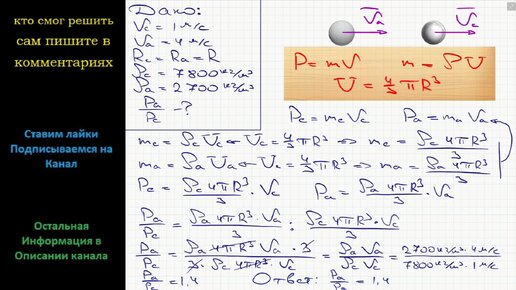 кто смог решить
сам пишите в
комментариях
Ставим лайки
Подписываемся на
Канал
Остальная
Информация в
Описании канала
Дано:
Vc = 1 м/с
Va = 4 м/с
Rc = Ra = R
ρc = 7800 кг/м³
ρa = 2700 кг/м³
Pa/Pc - ?
Va Vc
P = mV m = ρU
U = 4/3 πR³
Pc = mcVc Pa = maVa
mc = ρcUc Uc = 4/3 πR³ ⇒ mc = ρc4πR³/3
ma = ρaUa Uc = 4/3 πR³ ⇒ ma = ρa4πR³/3
Pc = ρc4πR³/3 · Vc Pa = ρa4πR³/3 · Va
Pa/Pc = ρa4πR³Va/3 : ρc4πR³·Vc/3
Pa/Pc = ρa4πR³Va · 3/3 · ρc4πR³ · Vc = ρaVa/ρcVc = 2700 кг/м³ · 4 м/с/7800 кг/м³ · 1 м/с
Pa/Pc = 1,4 Ответ: Pa/Pc = 1,4